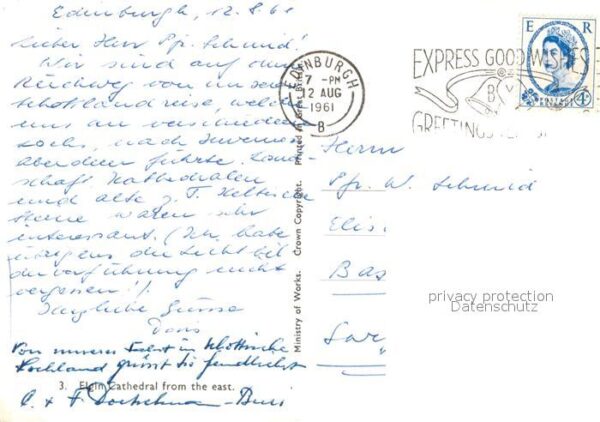 Edinburgh, 12.8.61
Lieber Herr Pfr. Schmid!
Wir sind auf dem
Rückweg von unserer
Schottlandreise, welche
uns an verschiedene
Lochs, nach Inverness
Aberdeen führte. Land-
schaft Kathedralen
und alte z. T. Keltische
Steine waren sehr
interessant. (Ich habe
die Lichtbil
der vorführung nicht
vergessen!)
Herzliche Grüsse
Doris
Von unserer Fahrt in schottische
Hochland grüsst Sie freundlichst
3. Elgin Cathedral from the east.
C. & F.
Ministry of Works. Crown Copyright. Printed in Great Britain
EDINBURGH
7 - PM
12 AUG
1961
B
EXPRESS GOOD WISHES
BY
GREETINGS
E R
POSTAGE
REVENUE
4D
Herrn
Pfr. W. Schmid
Elis.
Bas
privacy protection
Datenschutz